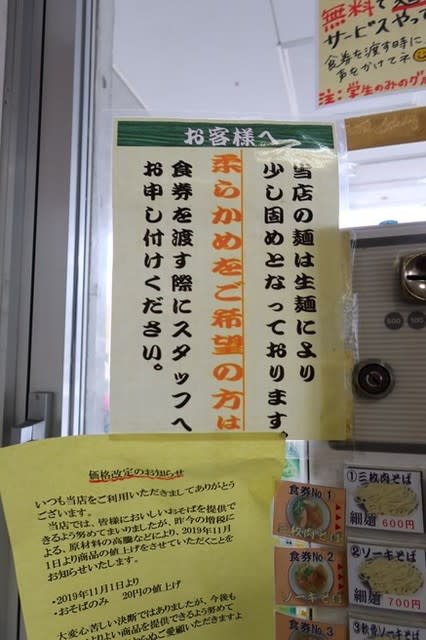 無料で麺
サービスやって
食券を渡す時に
声をかけてネ
注:学生のみのグル
お客様へ
当店の麺は生麺により
少し固めとなっております。
柔らかめをご希望の方は
食券を渡す際にスタッフへ
お申し付けください。
500
500
価格改定のお知らせ
いつも当店をご利用いただきましてありがとう
ございます。
当店では、皆様においしいおそばを提供で
きるよう努めてまいりましたが、昨今の増税に
よる、原材料の高騰などにより、2019年11月
1日より商品の値上げをさせていただくことを
お知らせいたします。
・2019年11月1日より
・おそばのみ 20円の値上げ
大変心苦しい決断ではありましたが、今後も
ご愛顧いただきますよ
食券No 1
三枚肉そば
食券No 2
ソーキそば
食券No 3
①三枚肉そば
細麺 600円
②ソーキそば
細麺 700円